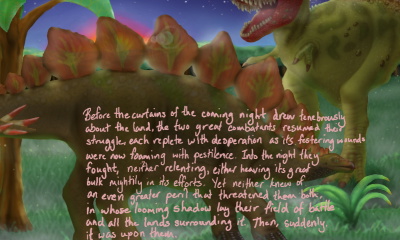 Before the curtains of the coming night drew tenebrously
about the land, the two great combatants resumed their
struggle, each replete with desperation as its festering wounds
were now foaming with pestilence. Into the night they
fought, neither relenting, either heaving its great
bulk mightily in its efforts. Yet neither knew of
an even greater peril that threatened them both,
In whose looming shadow lay their field of battle
and all the lands surrounding it. Then, suddenly,
it was upon them.